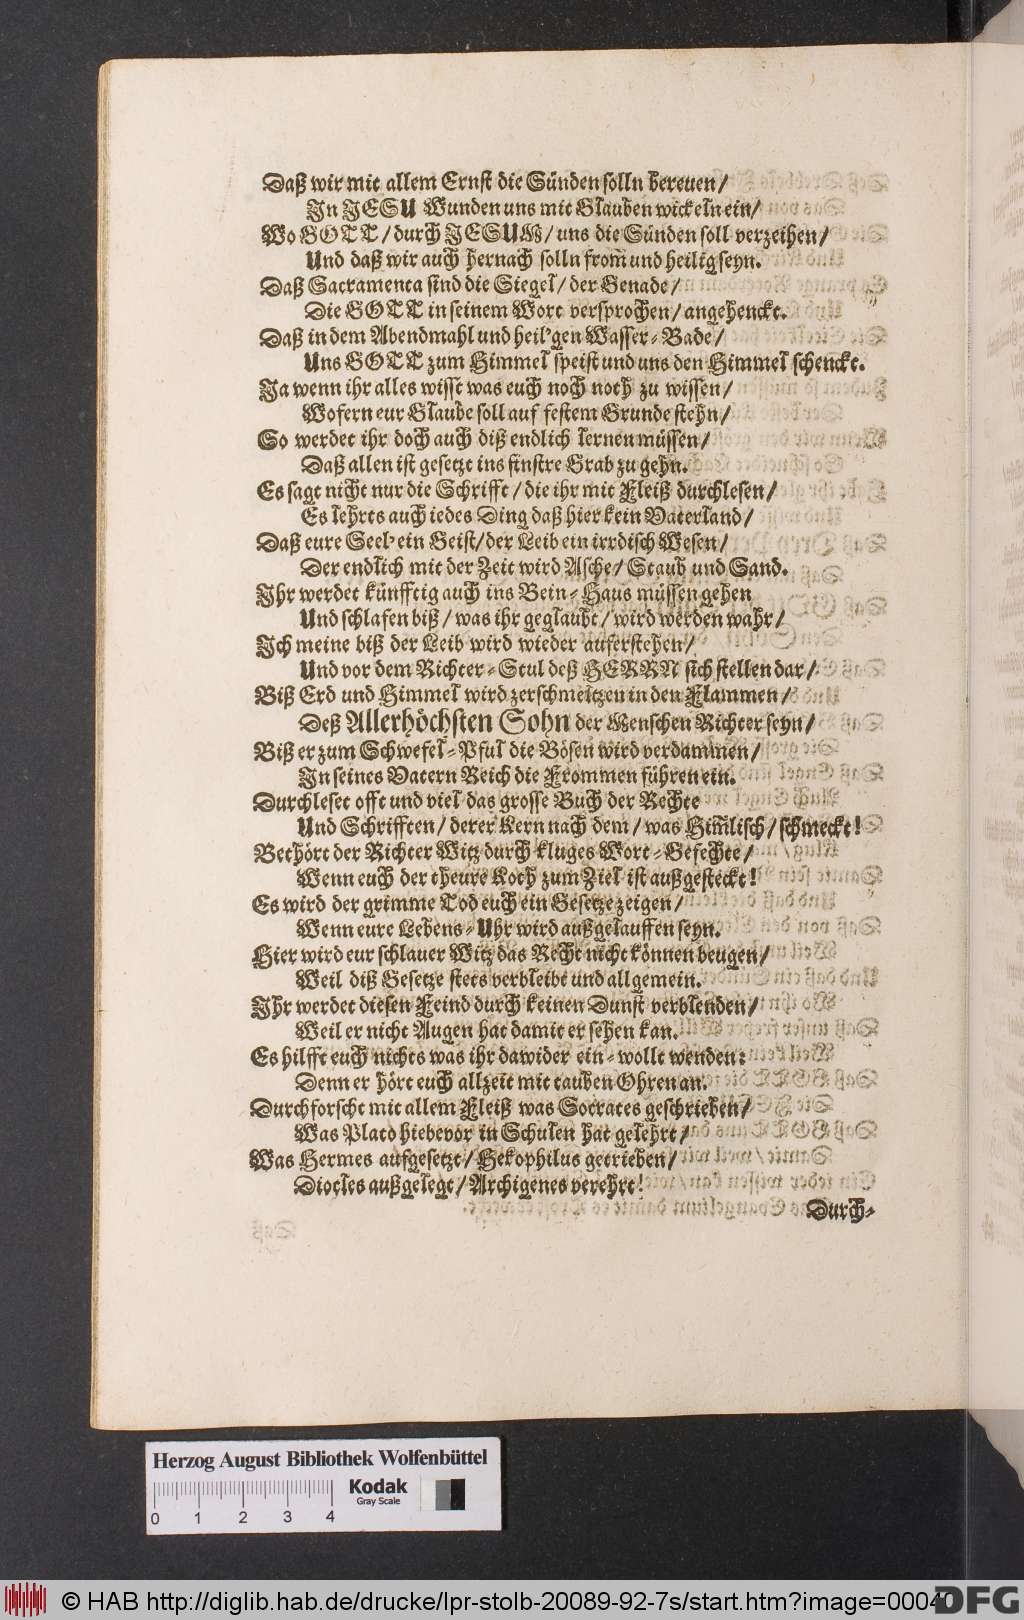 Daß wir mit allem Ernst die Sünden solln bereuen/
In JESU Wunden uns mit Glauben wickeln ein/
Wo GOTT/ durch JESUM/ uns die Sünden soll verzeihen/
Und daß wir auch hernach solln from̃ und heilig seyn.
Daß Sacramenta sind die Siegel/ der Genade/
Die GOTT in seinem Wort versprochen/ angehenckt.
Daß in dem Abendmahl und heil'gen Wasser-Bade/
Uns GOTT zum Himmel speist und uns den Himmel schenckt.
Ja wenn ihr alles wisst was euch noch noth zu wissen/
Wofern eur Glaube soll auf festem Grunde stehn/
So werdet ihr doch auch diß endlich lernen müssen/
Daß allen ist gesetzt ins finstre Grab zu gehn.
Es sagt nicht nur die Schrifft/ die ihr mit Fleiß durchlesen/
Es lehrts auch iedes Ding daß hier kein Vaterland/
Daß eure Seel' ein Geist/ der Leib ein irrdisch Wesen/
Der endlich mit der Zeit wird Asche/ Staub und Sand.
Ihr werdet künfftig auch ins Bein-Haus müssen gehen
Und schlafen biß/ was ihr geglaubt/ wird werden wahr/
Ich meine biß der Leib wird wieder auferstehen/
Und vor dem Richter-Stul deß HERRN sich stellen dar/
Biß Erd und Himmel wird zerschmeltzen in den Flammen/
Deß Allerhöchsten Sohn der Menschen Richter seyn/
Biß er zum Schwefel-Pful die Bösen wird verdammen/
In seines Vatern Reich die Frommen führen ein.
Durchleset offt und viel das grosse Buch der Rechte
Und Schrifften/ derer Kern nach dem/ was Him̃lisch/ schmeckt!
Bethört der Richter Witz durch kluges Wort-Gefechte/
Wenn euch der theure Koth zum Ziel ist außgesteckt!
Es wird der grimme Tod euch ein Gesetze zeigen/
Wenn eure Lebens-Uhr wird außgelauffen seyn.
Hier wird eur schlauer Witz das Recht nicht können beugen/
Weil diß Gesetze stets verbleibt und allgemein.
Ihr werdet diesen Feind durch keinen Dunst verblenden/
Weil er nicht Augen hat damit er sehen kan.
Es hilfft euch nichts was ihr dawider ein-wollt wenden:
Denn er hört euch allzeit mit tauben Ohren an.
Durchforscht mit allem Fleiß was Socrates geschrieben/
Was Plato hiebevor in Schulen hat gelehrt/
Was Hermes aufgesetzt/ Hekophilus getrieben/
Diocles außgelegt/ Archigenes verehrt!
Durch-
Herzog August Bibliothek Wolfenbüttel
Kodak
Gray Scale
0 1 2 3 4
© HAB http://diglib.hab.de/drucke/lpr-stolb-20089-92-7s/start.htm?image=00040
DFG